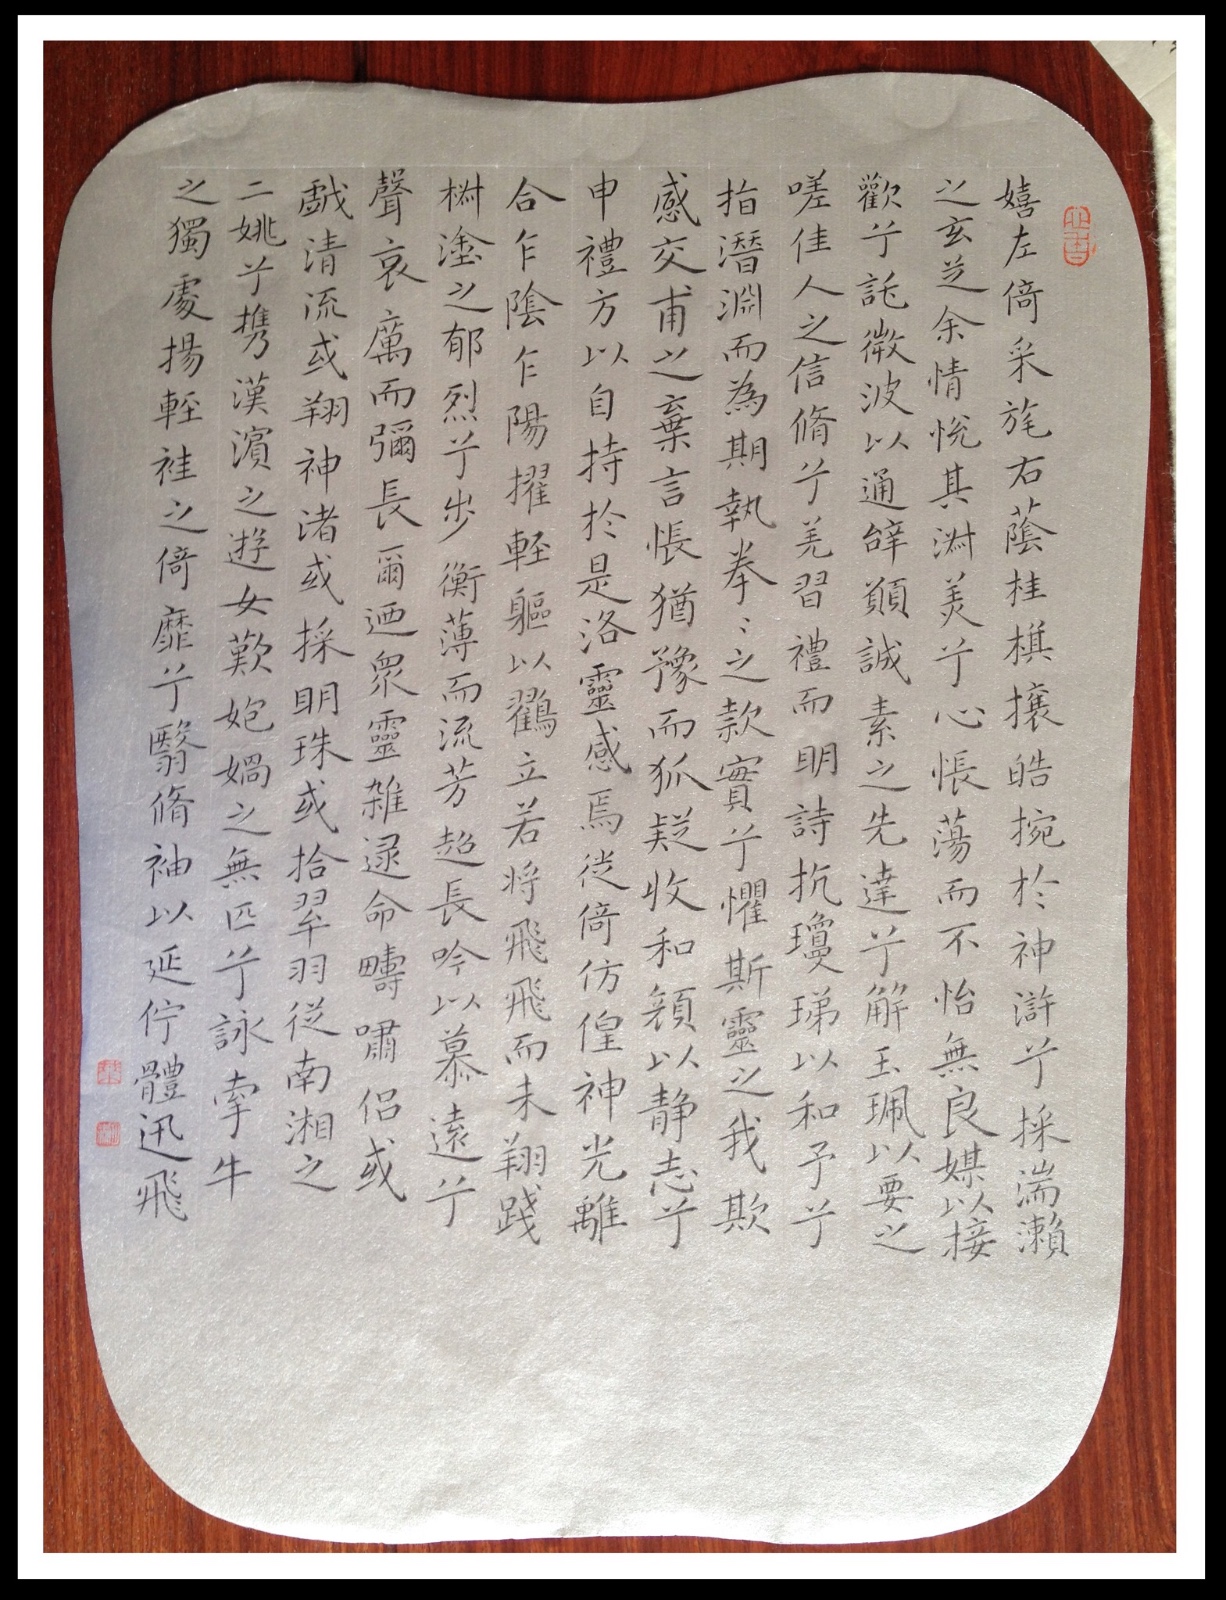 嬉左倚采旄右蔭桂棋攘皓捥於神滸兮採湍瀨
之玄芝余情悅其淑美兮心悵蕩而不怡無良媒以接
歡兮託微波以通辭願誠素之先達兮解玉珮以要之
嗟佳人之信脩兮羌習禮而明詩抗瓊珶以和予兮
指潛淵而為期執拳〻之款實兮懼斯靈之我欺
感交甫之棄言悵猶豫而狐疑收和顏以静志兮
申禮方以自持於是洛靈感焉徙倚仿偟神光離
合乍陰乍陽擢輕軀以鶴立若將飛飛而未翔踐
椒塗之郁烈兮步衡薄而流芳超長吟以慕遠兮
聲哀厲而彌長爾迺眾靈雜遝命疇嘯侶或
戲清流或翔神渚或採明珠或拾翠羽從南湘之
二姚兮攜漢濱之遊女歎匏媧之無匹兮詠牽牛
之獨處揚輕袿之倚靡兮翳脩袖以延佇體迅飛